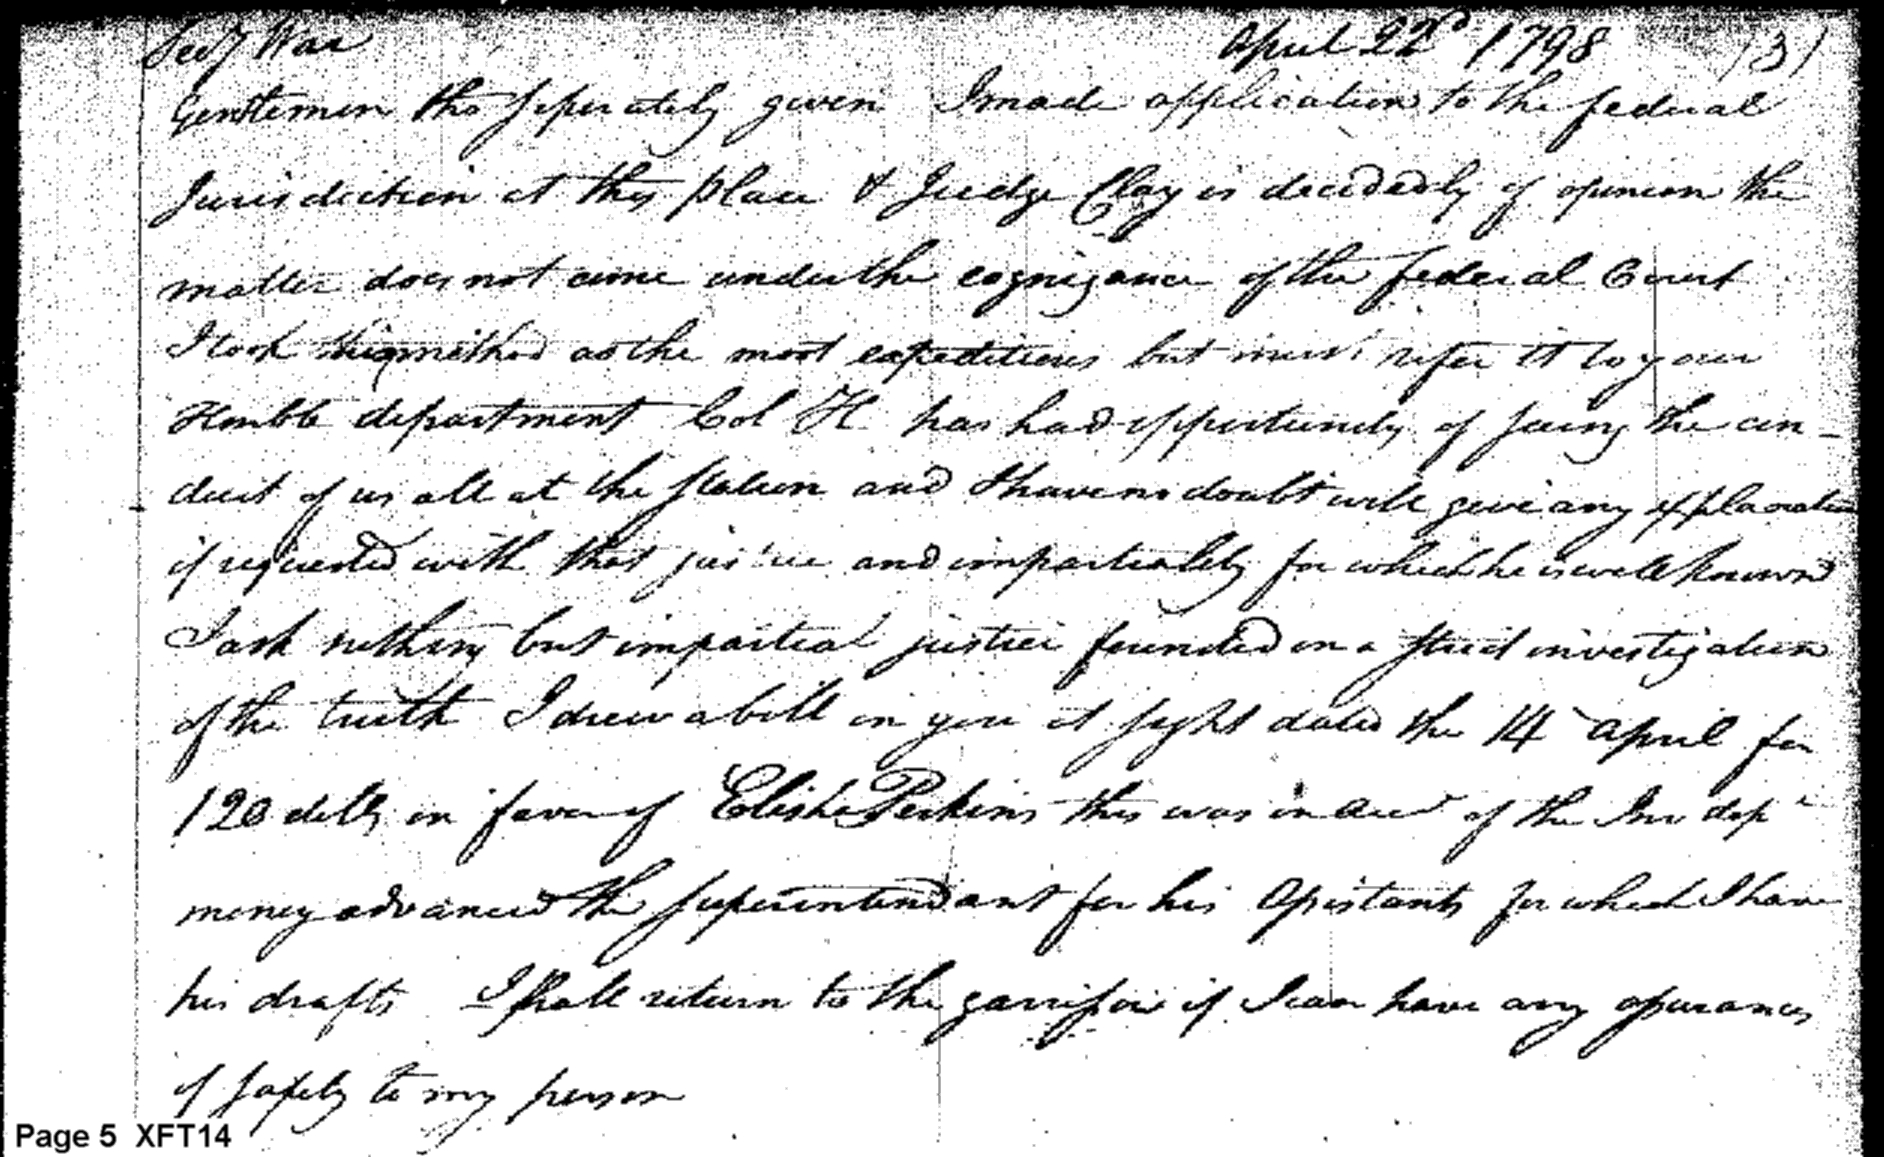 Secy War April 22d 1798 (3)
Gentlemen tho seperately given I made application to the federal
Jurisdiction at this place & Judge Clay is decidedly of opinion the
matter does not come under the cognizance of the federal Court
I took this method as the most expeditious but must refer it to your
Honble department Col H has had oppertunity of seeing the con-
duct of us all at the station and I have no doubt will give any explanation
if requested with that justice and impartiality for which he is well known
I ask nothing but impartial justice founded on a strict investigation
of the truth I drew a bill on you at sight dated the 14 April for
120 dolls in favor of Elisha Perkins this was in acct of the Inn dept
money advanced the superintendant for his assistants for which I have
his drafts I shall return to the garrison if I can have any assurances
of safety to my person
Page 5 XFT14